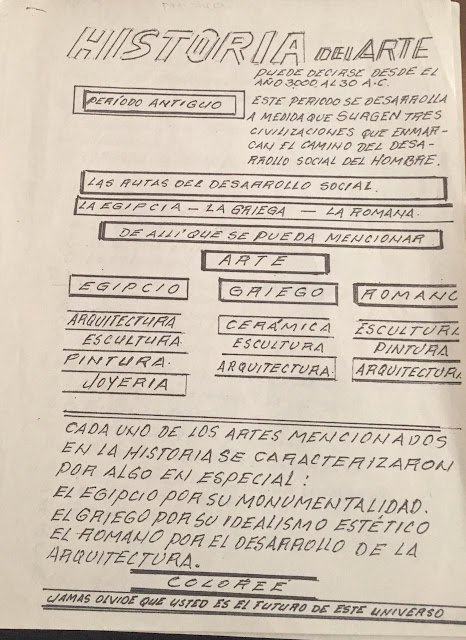 HISTORIA DEL ARTE
PUEDE DECIRSE DESDE EL
AÑO 3,000 AL 30 A.C.
PERÍODO ANTIGUO
ESTE PERIODO SE DESARROLLA
A MEDIDA QUE SURGEN TRES
CIVILIZACIONES QUE ENMAR-
CAN EL CAMINO DEL DESA-
RROLLO SOCIAL DEL HOMBRE.
LAS RUTAS DEL DESARROLLO SOCIAL.
LA EGIPCIA — LA GRIEGA — LA ROMANA.
DE ALLÍ QUE SE PUEDA MENCIONAR
ARTE
EGIPCIO GRIEGO ROMANO
ARQUITECTURA CERÁMICA ESCULTURA
ESCULTURA ESCULTURA PINTURA
PINTURA. ARQUITECTURA. ARQUITECTURA
JOYERIA
CADA UNO DE LOS ARTES MENCIONADOS
EN LA HISTORIA SE CARACTERIZARON
POR ALGO EN ESPECIAL:
EL EGIPCIO POR SU MONUMENTALIDAD.
EL GRIEGO POR SU IDEALISMO ESTÉTICO
EL ROMANO POR EL DESARROLLO DE LA
ARQUITECTURA.
COLOREÉ
JAMAS OLVIDE QUE USTED ES EL FUTURO DE ESTE UNIVERSO